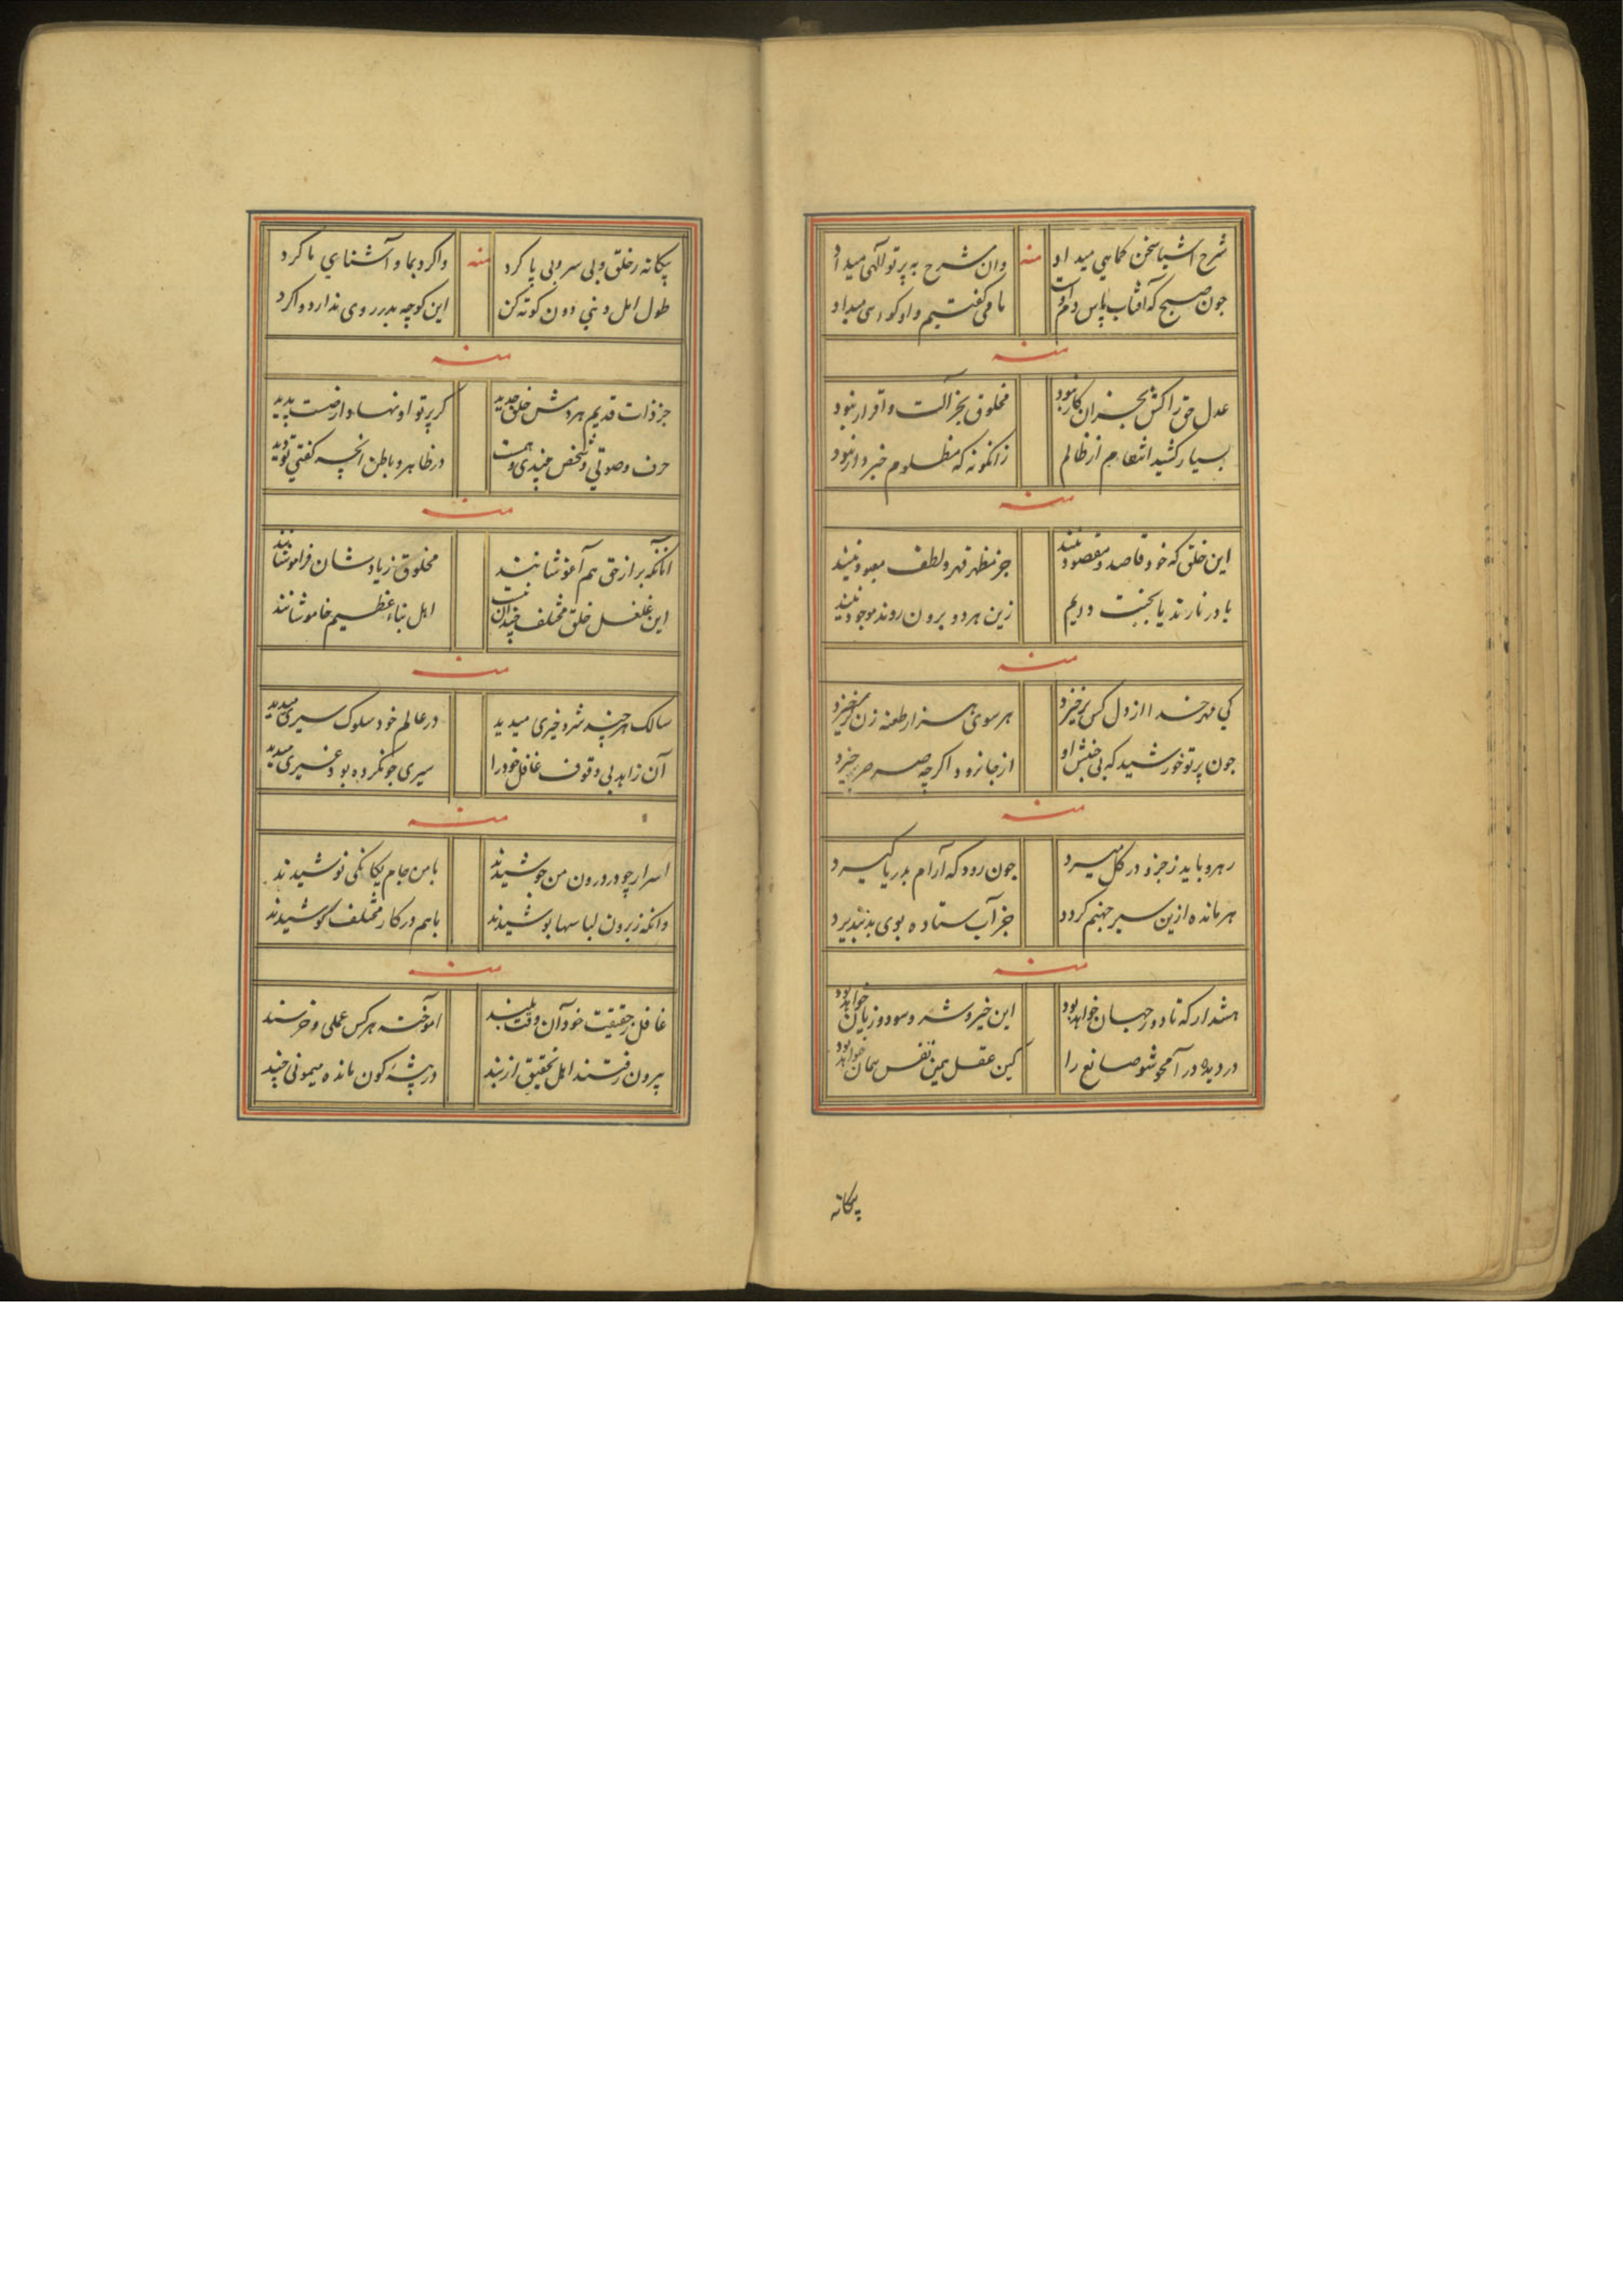 شرح اشیا سخن کماهی میداد منه وان شرح به پرتو آلهی میداد
جون صبح که آفتاب پاس دم اوست ما می کفتیم واو کواهی میداد
منه
عدل حق را کش بجز ان کار نبود مخلوق بجز آلت وافرار نبود
بسیار کشید انتقام از ظالم زانکونه که مظلوم خبردار نبود
منه
این خلق که خود قاصد و مقصود نیند جز مظهر قهر و لطف معبود نیند
یا در نارند یا بجنت دریم زین هر دو برون روند موجود نیند
منه
کی مهر خدا از دل کس برخیزد هر سوی هزار طعنه زن کر خیزد
جون پرتو خورشید که بی جنبش او از جا نرود اکرچه صرصر خیزد
منه
رهرو باید ز جزو در کل میرد جون رود که آرام بدریا کیرد
هر مانده ازین سیر جهنم کردد جز آب ستاده بوی بد نپذیرد
منه
هشدار که تا دور جهان خواهد بود این خیر و شر و سود و زیان خواهد بود
در دیده در آ محو شو صانع را کین عقل همین نفس همان خواهد بود
پیکانه
پیکانه ز خلق و بی سر و بی پا کرد منه واکرد بما و آشنای ما کرد
طول امل دنیی دون کوته کن این کوچه بدر روی ندارد واکرد
منه
جز ذات قدیم هر دمش خلق جدید کر پرتو او نهاد وارضست پدید
حرف و صوتی و شخص جنبدی و همت در ظاهر و باطن انچه کفتی تو دید
منه
آنانکه براز حق هم آغوشانند مخلوق ز یادشان فراموشانند
این غلغل خلق مختلف چندان نیست اهل بناء عظیم خاموشانند
منه
سالک هر چند شر و خیری میدید در عالم خود سلوک سیری میدید
آن زاهد بی وقوف غافل خود را سیری جو نکرده بود غیری میدید
منه
اسرار چو در درون من جوشیدند با من جام یکانکی نوشیدند
وانکه ز برون لباسها پوشیدند با هم در کار مختلف کوشیدند
منه
غافل ز حقیقت خود آن وقت پسند آموخته هر کس عملی و خرسند
بیرون رفتند اهل تحقیق از بند در پشه کون مانده میمونی چند